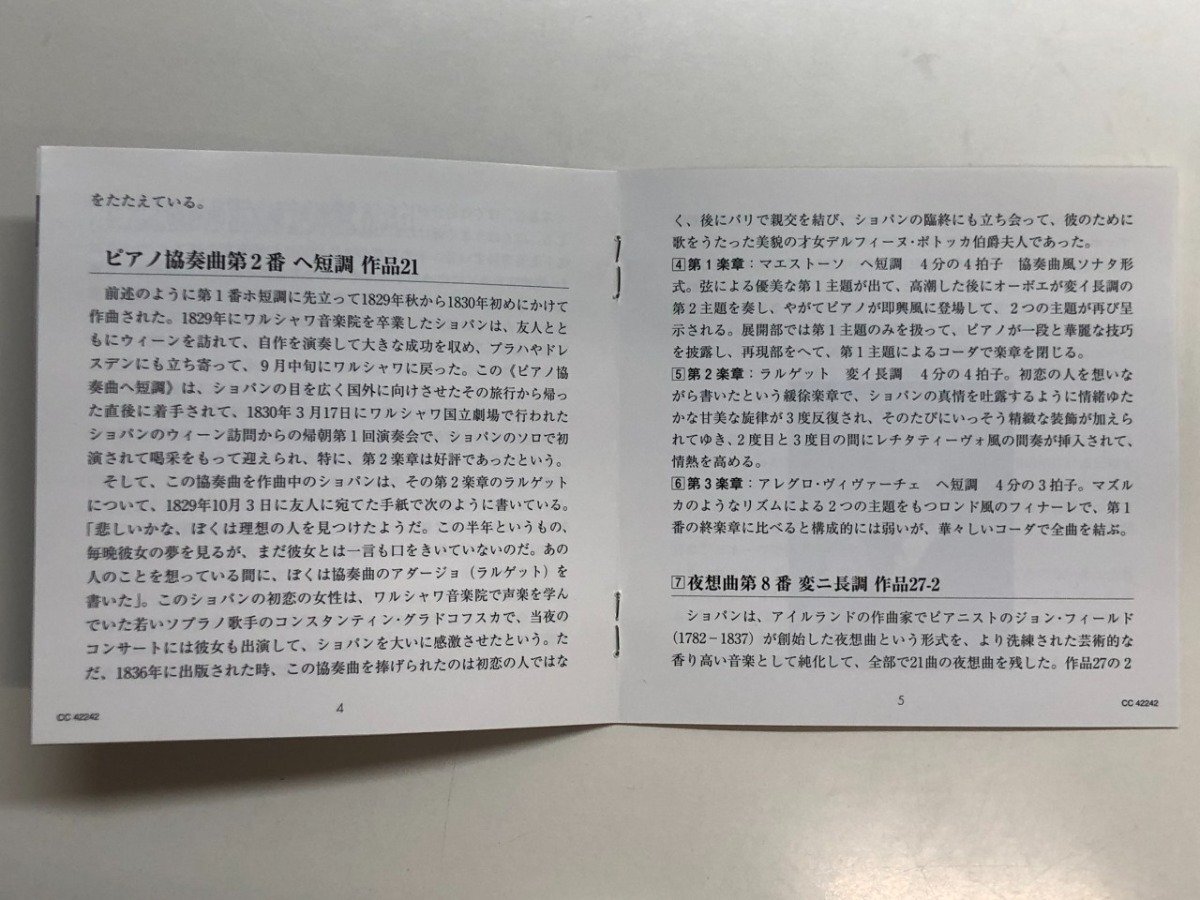 をたたえている。
ピアノ協奏曲第2番 ヘ短調 作品21
前述のように第1番ホ短調に先立って1829年秋から1830年初めにかけて
作曲された。1829年にワルシャワ音楽院を卒業したショパンは、友人とと
もにウィーンを訪れて、自作を演奏して大きな成功を収め、プラハやドレ
スデンにも立ち寄って、9月中旬にワルシャワに戻った。この《ピアノ協
奏曲ヘ短調》は、ショパンの目を広く国外に向けさせたその旅行から帰っ
た直後に着手されて、1830年3月17日にワルシャワ国立劇場で行われた
ショパンのウィーン訪問からの帰朝第1回演奏会で、ショパンのソロで初
演されて喝采をもって迎えられ、特に、第2楽章は好評であったという。
そして、この協奏曲を作曲中のショパンは、その第2楽章のラルゲット
について、1829年10月3日に友人に宛てた手紙で次のように書いている。
「悲しいかな、ぼくは理想の人を見つけたようだ。この半年というもの、
毎晩彼女の夢を見るが、まだ彼女とは一言も口をきいていないのだ。あの
人のことを想っている間に、ぼくは協奏曲のアダージョ(ラルゲット)を
書いた」。このショパンの初恋の女性は、ワルシャワ音楽院で声楽を学ん
でいた若いソプラノ歌手のコンスタンティン・グラドコフスカで、当夜の
コンサートには彼女も出演して、ショパンを大いに感激させたという。た
だ、1836年に出版された時、この協奏曲を捧げられたのは初恋の人ではな
4
CC 42242
く、後にパリで親交を結び、ショパンの臨終にも立ち会って、彼のために
歌をうたった美貌の才女デルフィーヌ・ポトッカ伯爵夫人であった。
4 第1楽章：マエストーソ ヘ短調 4分の4拍子 協奏曲風ソナタ形
式。弦による優美な第1主題が出て、高潮した後にオーボエが変イ長調の
第2主題を奏し、やがてピアノが即興風に登場して、2つの主題が再び呈
示される。展開部では第1主題のみを扱って、ピアノが一段と華麗な技巧
を披露し、再現部をへて、第1主題によるコーダで楽章を閉じる。
5 第2楽章：ラルゲット 変イ長調 4分の4拍子。初恋の人を想いな
がら書いたという緩徐楽章で、ショパンの真情を吐露するように情緒ゆた
かな甘美な旋律が3度反復され、そのたびにいっそう精緻な装飾が加えら
れてゆき、2度目と3度目の間にレチタティーヴォ風の間奏が挿入されて、
情熱を高める。
6 第3楽章：アレグロ・ヴィヴァーチェ ヘ短調 4分の3拍子。マズル
カのようなリズムによる2つの主題をもつロンド風のフィナーレで、第1
番の終楽章に比べると構成的には弱いが、華々しいコーダで全曲を結ぶ。
7 夜想曲第8番 変ニ長調 作品27-2
ショパンは、アイルランドの作曲家でピアニストのジョン・フィールド
(1782－1837)が創始した夜想曲という形式を、より洗練された芸術的な
香り高い音楽として純化して、全部で21曲の夜想曲を残した。作品27の2
5
CC 42242